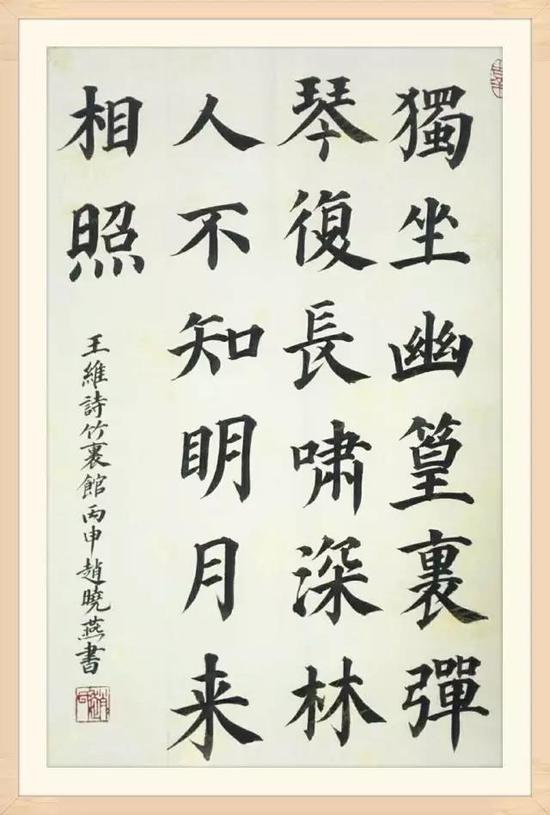 獨坐幽篁裏彈
琴復長嘯深林
人不知明月来
相照
王維詩竹裏館丙申趙曉燕書